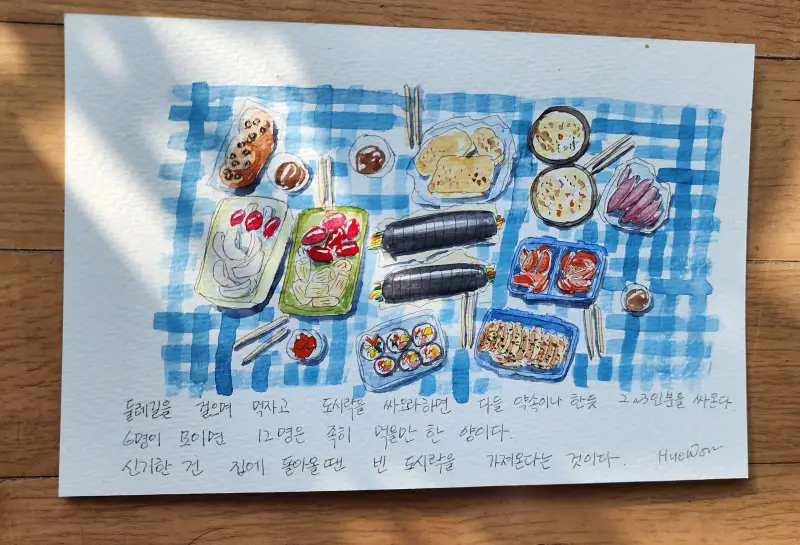 둘레길을 걸으며 먹자고 도시락을 싸오라하면 다들 약속이나 한듯 2~3인분을 싸온다.
6명이 모이면 12명은 족히 먹을만 한 양이다.
신기한 건 집에 돌아올땐 빈 도시락을 가져온다는 것이다. HueWon